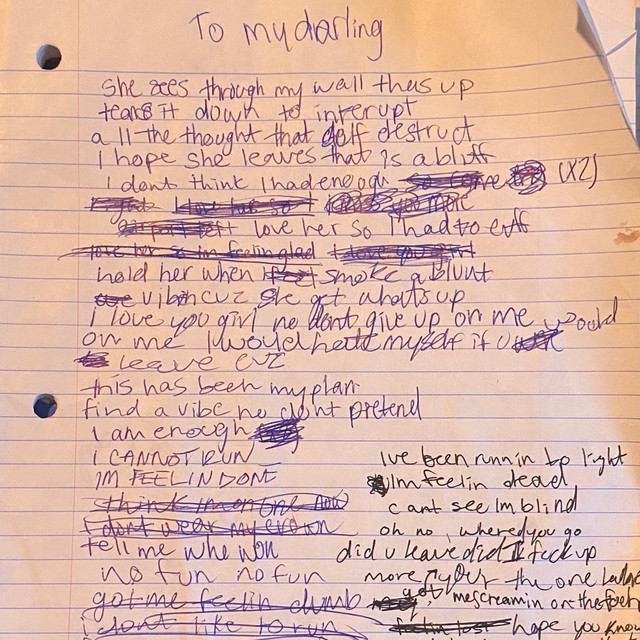 To my darling
she sees through my wall thas up
tears it down to interupt
all the thought that self destruct
I hope she leaves that is a bluff
I dont think I had enough (X2)
love her so I had to cuff
hold her when I smoke a blunt
vibin cuz she get whats up
i love you girl no dont give up on me
on me I would hate myself if u would
leave cuz
this has been my plan
find a vibe no dont pretend
I am enough
I CANNOT RUN
IM FEELIN DONE
think im on one now
I dont wear my crown
tell me who won
no fun no fun
got me feelin dumb
I dont like to run
Ive been runnin to light
Im feelin dead
cant see Im blind
oh no, where'd you go
did u leave did I feck up
more your the one
got me screamin on the
feelin lost hope you know